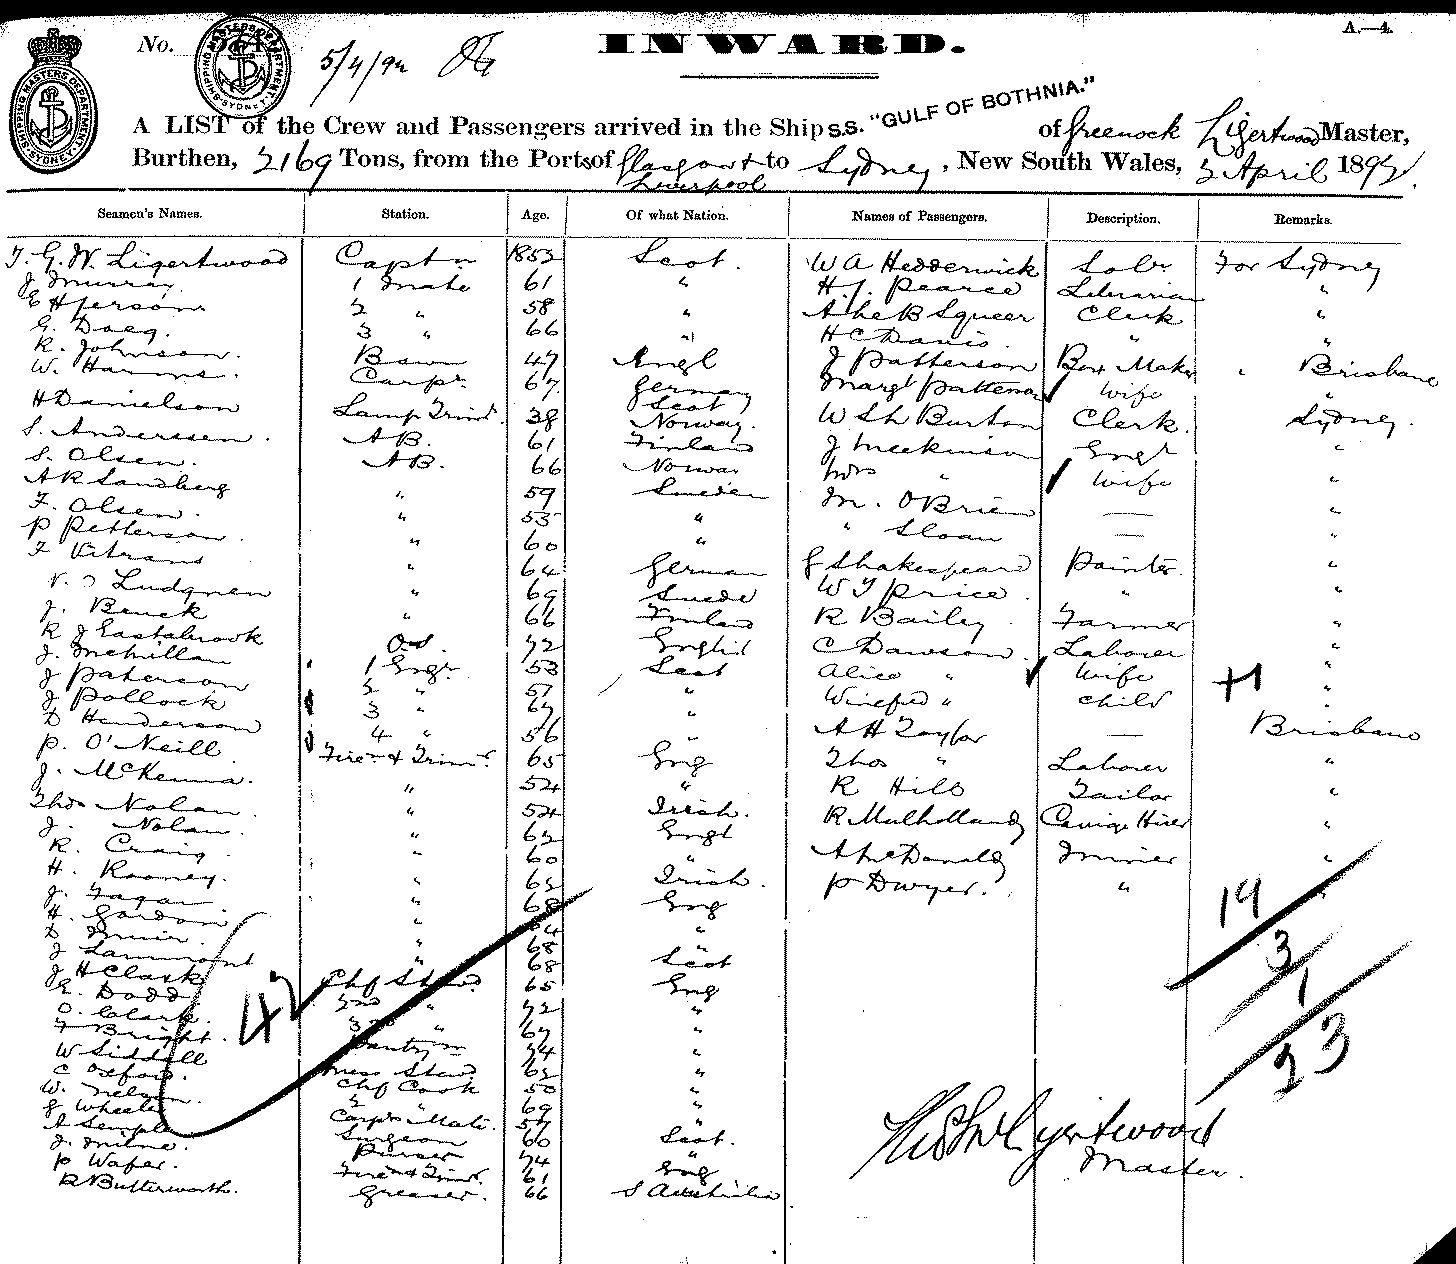 A.—4.
No.
SHIPPING MASTERS DEPARTMENT SYDNEY
5/4/92
INWARD.
A LIST of the Crew and Passengers arrived in the Ship S.S. "GULF OF BOTHNIA." of Greenock Ligertwood Master,
Burthen, 2169 Tons, from the Ports of Glasgow & Liverpool to Sydney, New South Wales, 2 April 1892.
Seamen's Names. Station. Age. Of what Nation. Names of Passengers. Description. Remarks.
T. G. W. Ligertwood Captn 1852 Scot. W A Hedderwick For Sydney
J Murray 1 Mate 61 " H. J. Pearce Librarian "
2 " 58 " Squeer Clerk "
G. Daeg. 3 " 66 " H C Davis. " "
R. Johnson. Bswn 47 Angl J Patterson Box Maker Brisbane
W. Harms. Carpr 67 Germany Margt Patterson Wife "
H Danielson Lamp Trimr. 38 Scot Norway. Burton Clerk. Sydney.
S. Anderssen. AB. 61 Finland J Meekinson Engr "
S. Olsen. AB. 66 Norway Mrs " Wife "
A R Sandberg " 59 Sweden M. O'Brien — "
F. Olsen. " 53 " " Sloan — "
P Petterson. " 60 "
F " 64 German G Shakespeare Painter. "
Ludgren " 69 Suede W T Price. " "
J. Bruck " 66 Finland R Bailey Farmer "
R J Eastabrook O.S. 72 English C Dawson. Laborer "
J. McMillan 1 Engr 53 Scot Alice " Wife "
J Paterson 2 " 57 " Winefred " child "
J Pollock 3 " 67 " A H Taylor — Brisbane
D Henderson 4 " 56 " Thos " Laborer "
P. O'Neill Firemn & Trimr. 65 Eng R Hill Tailor "
J. McKenna. " 52 " R Mulholland "
Thos Nolan. " 52 Irish.
J. Nolan. " 62 Engl A McDonald Miner "
R. Craig. " 60 " P Dwyer. " "
H. Rooney. " 62 Irish.
J. Fagan " 68 Eng
H. Gordon " 64 "
D Miner. " 68 "
J Lammont " 68 Scot
J H Clark Chf Stewd. 65 Eng
E. Dodd 2nd " 72 "
O. Clark. 3rd " 67 "
F Bright. Pantrymn 74 "
W Siddell Mess Stewd 62 "
C Oxford. Chf Cook 50 "
W. Nelson. 2 " 69 "
G Wheeler Carprs Mate. 57 "
A Semple Surgeon 60 Scot.
J. Milne. Purser 74 "
P Wafer. Firemn & Trimr. 61 Eng
R Butterworth. Greaser. 66 S Australia
42
+1
19
3
1
23
Ligertwood
Master.